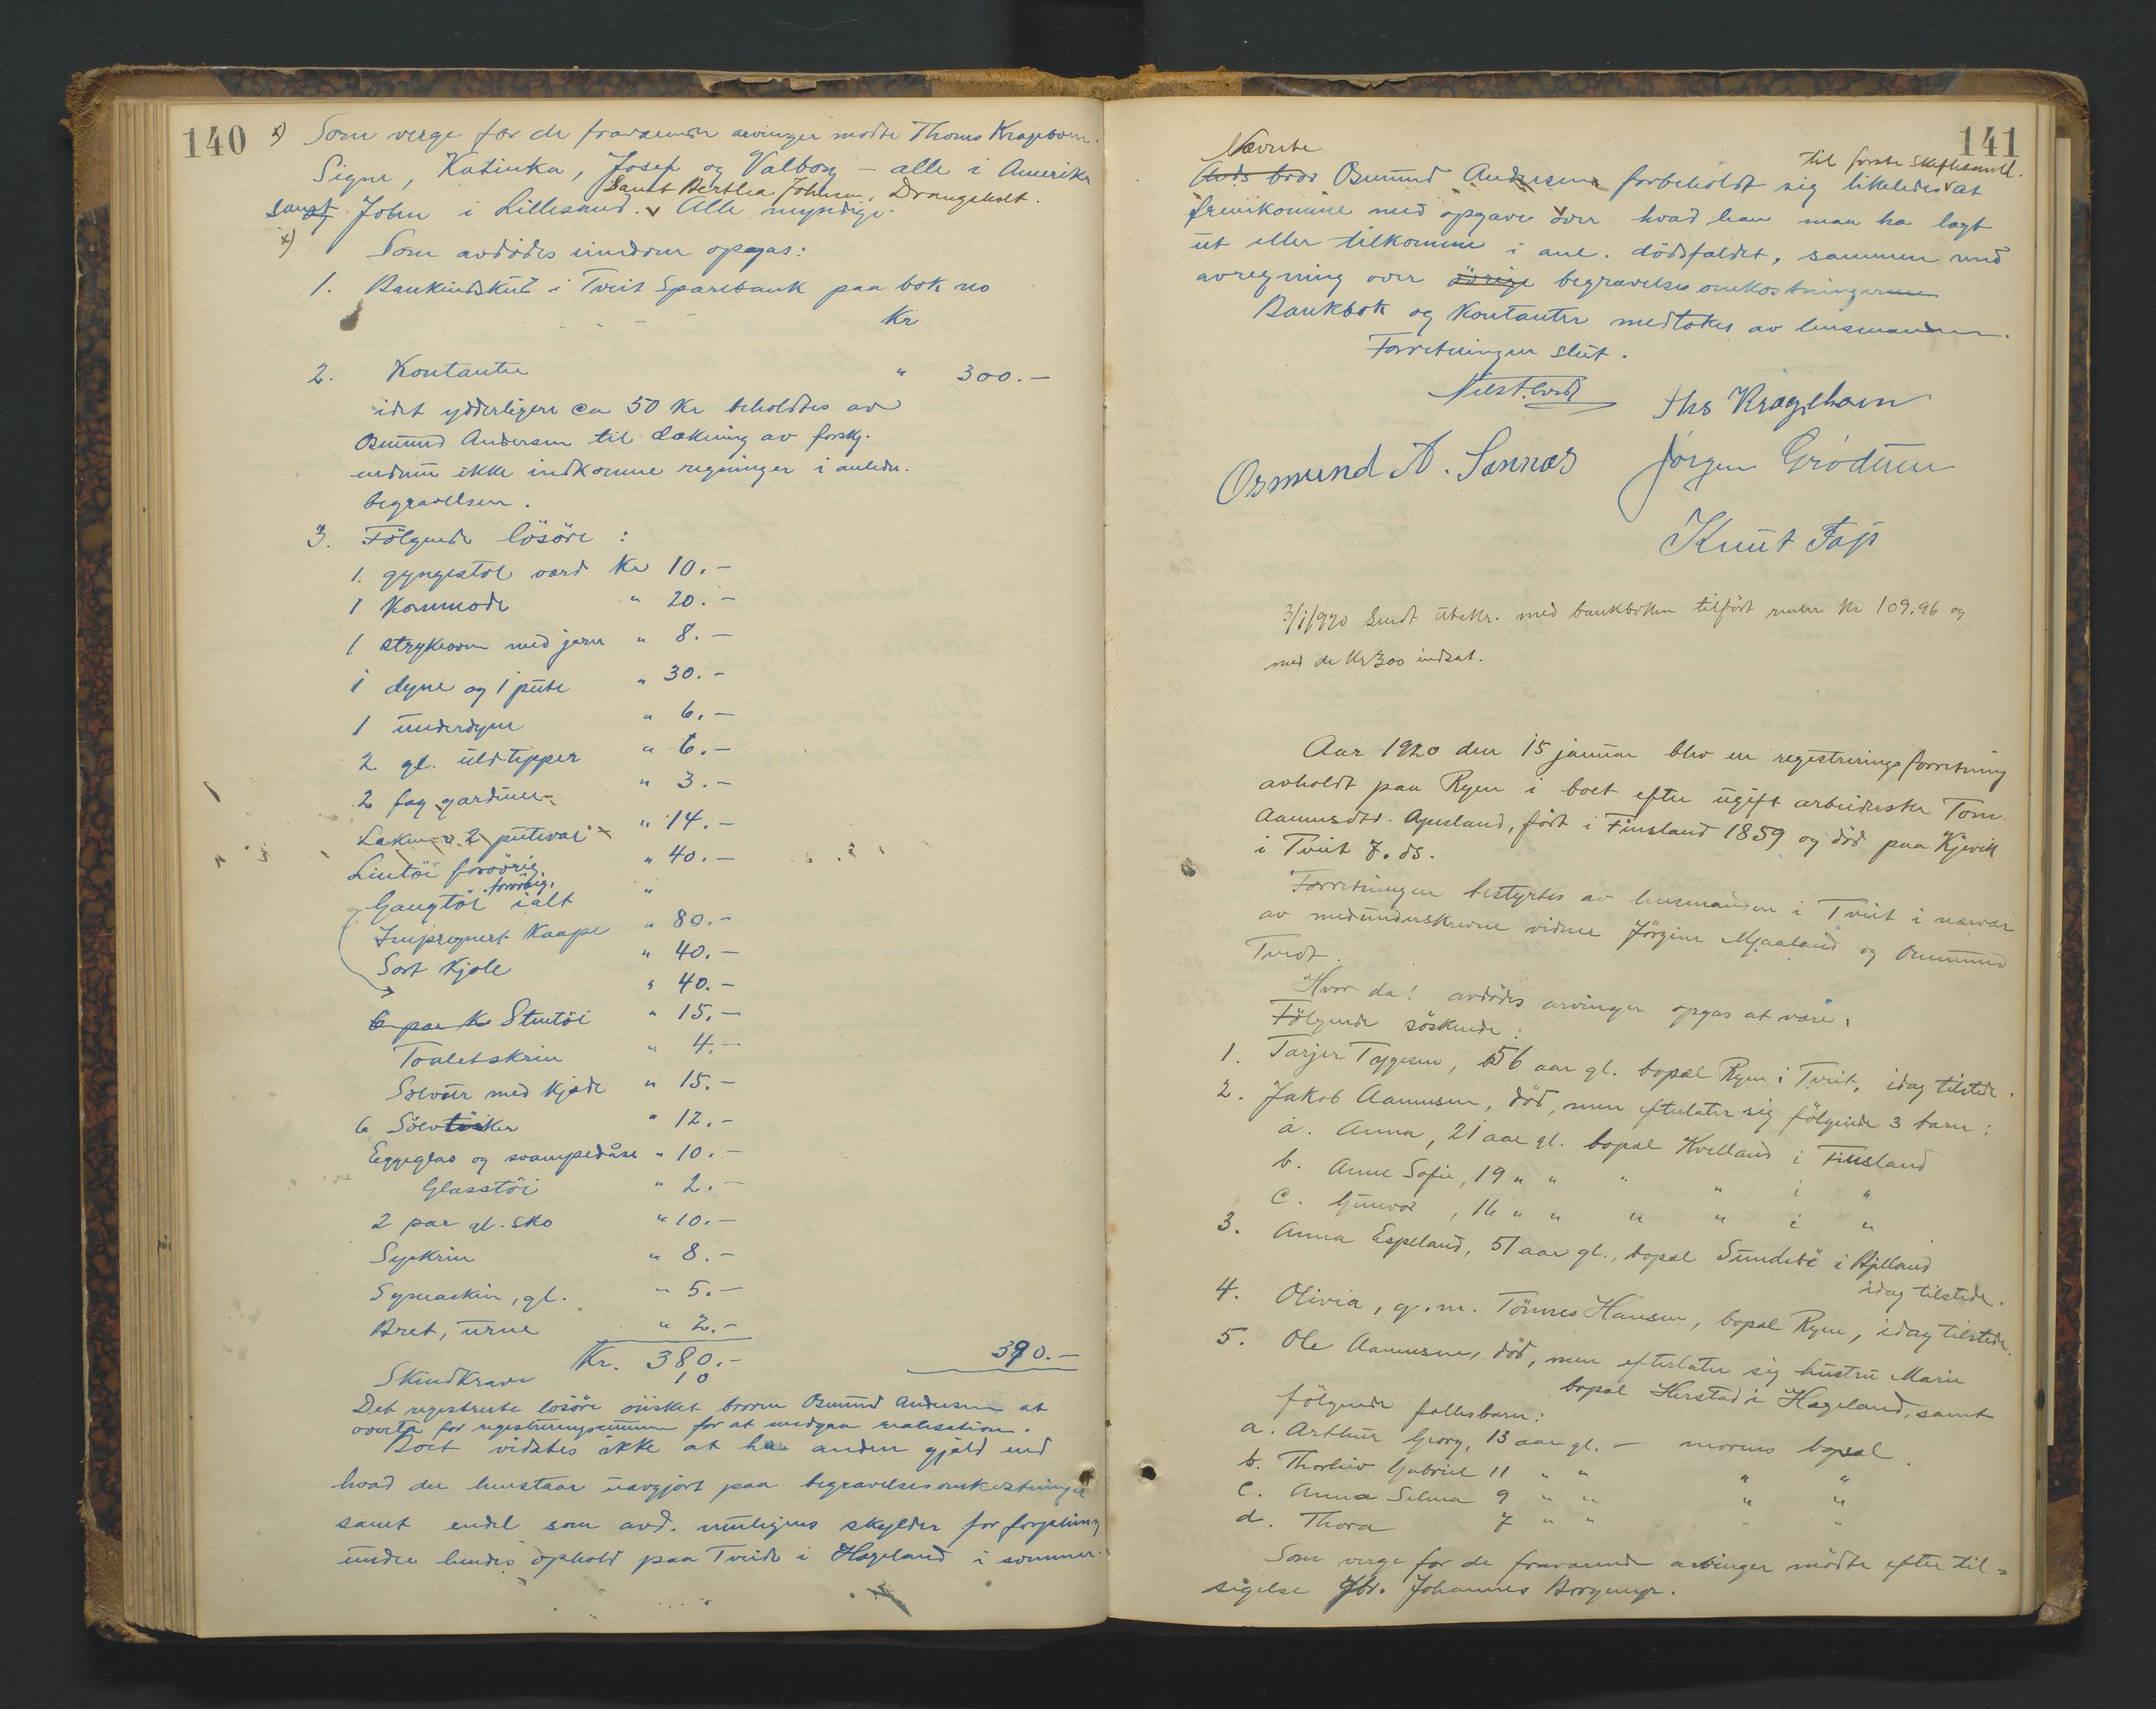 140
x) Som verge for de fraværende arvinger mødte Thoms Kragebom.
Signe, Katinka, Josef og Valborg – alle i Amerika
samt John i Lillesand. v Alle myndige.
samt Berthea Johnsen, Drangsholt.
x)
Som avdødes eiendom opgas:
1. Bankindskud i Tveit Sparebank paa bok no
Kr
2. Kontanter " 300.–
idet ydderligere ca 50 Kr beholdtes av
Osmund Andersen til dækning av forskj.
endnu ikke indkomne regninger i anledn.
begravelsen.
3. Følgende løsøre :
1. gyngestol værd Kr 10.–
1 Kommode " 20.–
1 strykeovn med jern " 8.–
1 dyne og 1 pute " 30.–
1 underdyne " 6.–
2 gl. uldtepper " 6.–
2 fag gardiner " 3.–
Laken 2 putevar " 14.–
Lintöi forøvrig " 40.–
Gangtöi forøvrig. ialt "
Impregnert Kaape " 80.–
Sort Kjole " 40.–
" 40.–
6 par K Stentöi " 15.–
Toaletskrin " 4.–
Sølvur med Kjede " 15.–
6 Sölvskeer " 12.–
Eggeglas og svampedåse " 10.–
Glasstöi " 2.–
2 par gl. sko " 10.–
Syskrin " 8.–
Symaskin, gl. " 5.–
Bret, urne " 2.–
Kr. 380.– 390.–
Skindkrave 10
Det registrerte løsøre önsket broren Osmund Andersen at
overta for registreringssummen for at undgaa realisation.
Boet vidstes ikke at ha anden gjæld end
hvad der henstaar uavgjort paa begravelsesomkostninger
samt endel som avd. muligens skylder for forpleining
under hendes ophold paa Tveide i Hægeland i sommer.
141
Nævnte
Avds bror Osmund Andersen forbeholdt sig likeledes v at
til første skiftesaml.
fremkomme med opgave over hvad han maa ha lagt
ut eller tilkomme i anl. dødsfaldet, sammen med
avregning over øvrige begravelsesomkostningerne
Bankbok og Kontanter medtokes av lensmanden.
Forretningen slut.
Ths Kragebom
Osmund A. Sannes Jørgen Grödum
Knut
3/1/1920 Sendt utskr. med bankboken tilført renter Kr 109.96 og
med de Kr 300 indsat.
Aar 1920 den 15 januar blev en registreringsforretning
avholdt paa Ryen i boet efter ugift arbeiderske Tone
Aanensdtr. Apesland, født i Finsland 1859 og död paa Kjevik
i Tveit 7. ds.
Forretningen bestyrtes av lensmanden i Tveit i nærvær
av medunderskrevne vidner Jörgine Mjaaland og Osmund
Tveit.
Hvor da! avdödes arvinger opgas at være:
Følgende søskende:
1. Tarjer Taggesen, 56 aar gl. bopæl Ryen i Tveit, idag tilstede.
2. Jakob Aanensen, död, men efterlater sig følgende 3 barn:
a. Anna, 21 aar gl. bopæl Kvelland i Finsland
b. Anne Sofie, 19 " " " " i "
c. Gunvor, 16 " " " " i "
3. Anna Espeland, 51 aar gl., bopæl Sundebö i Bjelland
idag tilstede.
4. Olivia, g.m. Tönnes Hansen, bopæl Ryen, idag tilstede.
5. Ole Aanensen, död, men efterlater sig hustru Marie
bopæl Herstad i Hægeland, samt
følgende fællesbarn:
a. Arthur Georg, 13 aar gl. – morens bopæl.
b. Thorleiv Gabriel 11 " " " "
c. Anna Selma 9 " " " "
d. Thora 7 " " " "
Som verge for de fraværende arvinger mödte efter til=
sigelse gbr. Johannes Borgemyr.